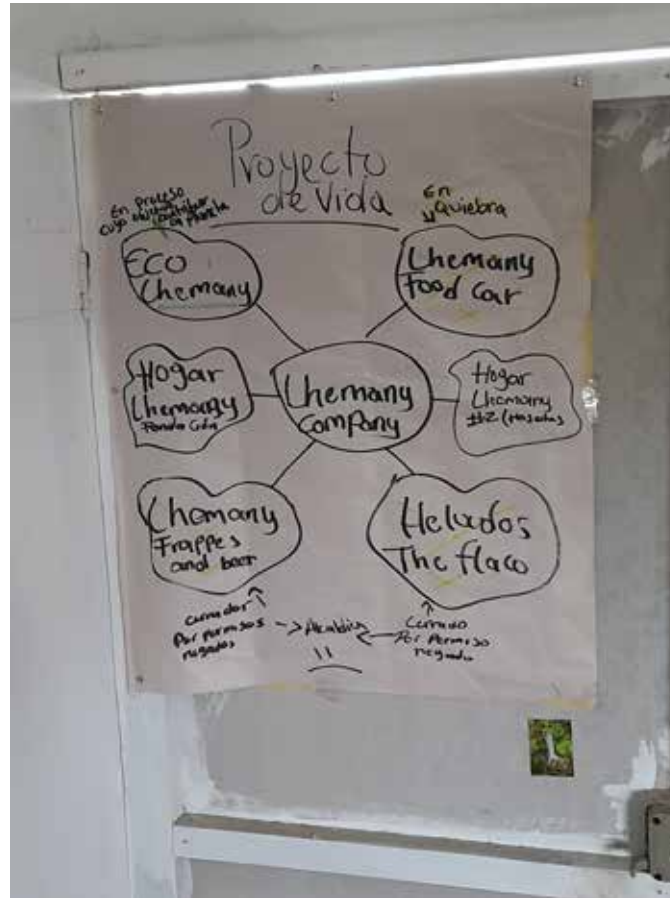 Proyecto
de vida
En proceso
cuyo
planeta
En
Quiebra
ECO
Chemany
Lhemany
Food Car
Hogar
Lhemany
Fundación
Lhemany
Company
Hogar
Lhemany
#2 (Mascotas
Lhemany
Frappes
and beer
Helados
The flaco
cerrador
Por permisos
negados
Alcaldia
Cerrado
Por permiso
negado